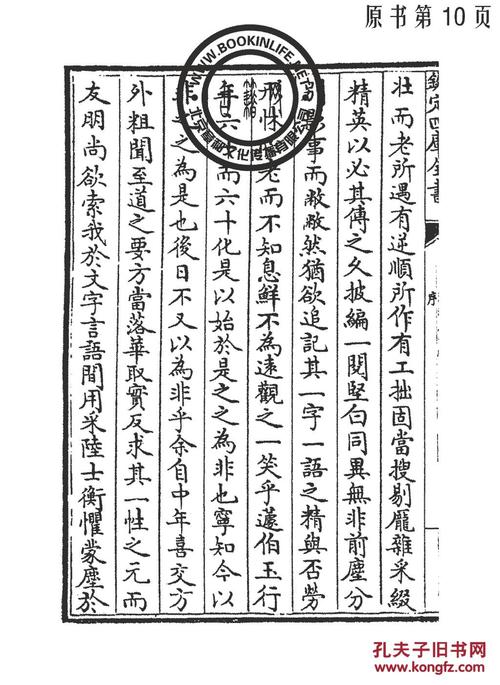 原书第10页
WWW.BOOKINLIFE.NET
文化传播有限公司
欽定四庫全書
序
壯而老所遇有逆順所作有工拙固當搜剔龐雜采綴
精英以必其傳之久披編一閱堅白同異無非前塵分
事而敝敝然猶欲追記其一字一語之精與否勞
形怵老而不知息鮮不為遠觀之一笑乎蘧伯玉行
年六而六十化是以始於是之之為非也寧知今以
之之為是也後日不又以為非乎余自中年喜交方
外粗聞至道之要方當落華取實反求其一性之元而
友朋尚欲索我於文字言語間用采陸士衡懼蒙塵於
孔夫子旧书网
www.kongfz.com